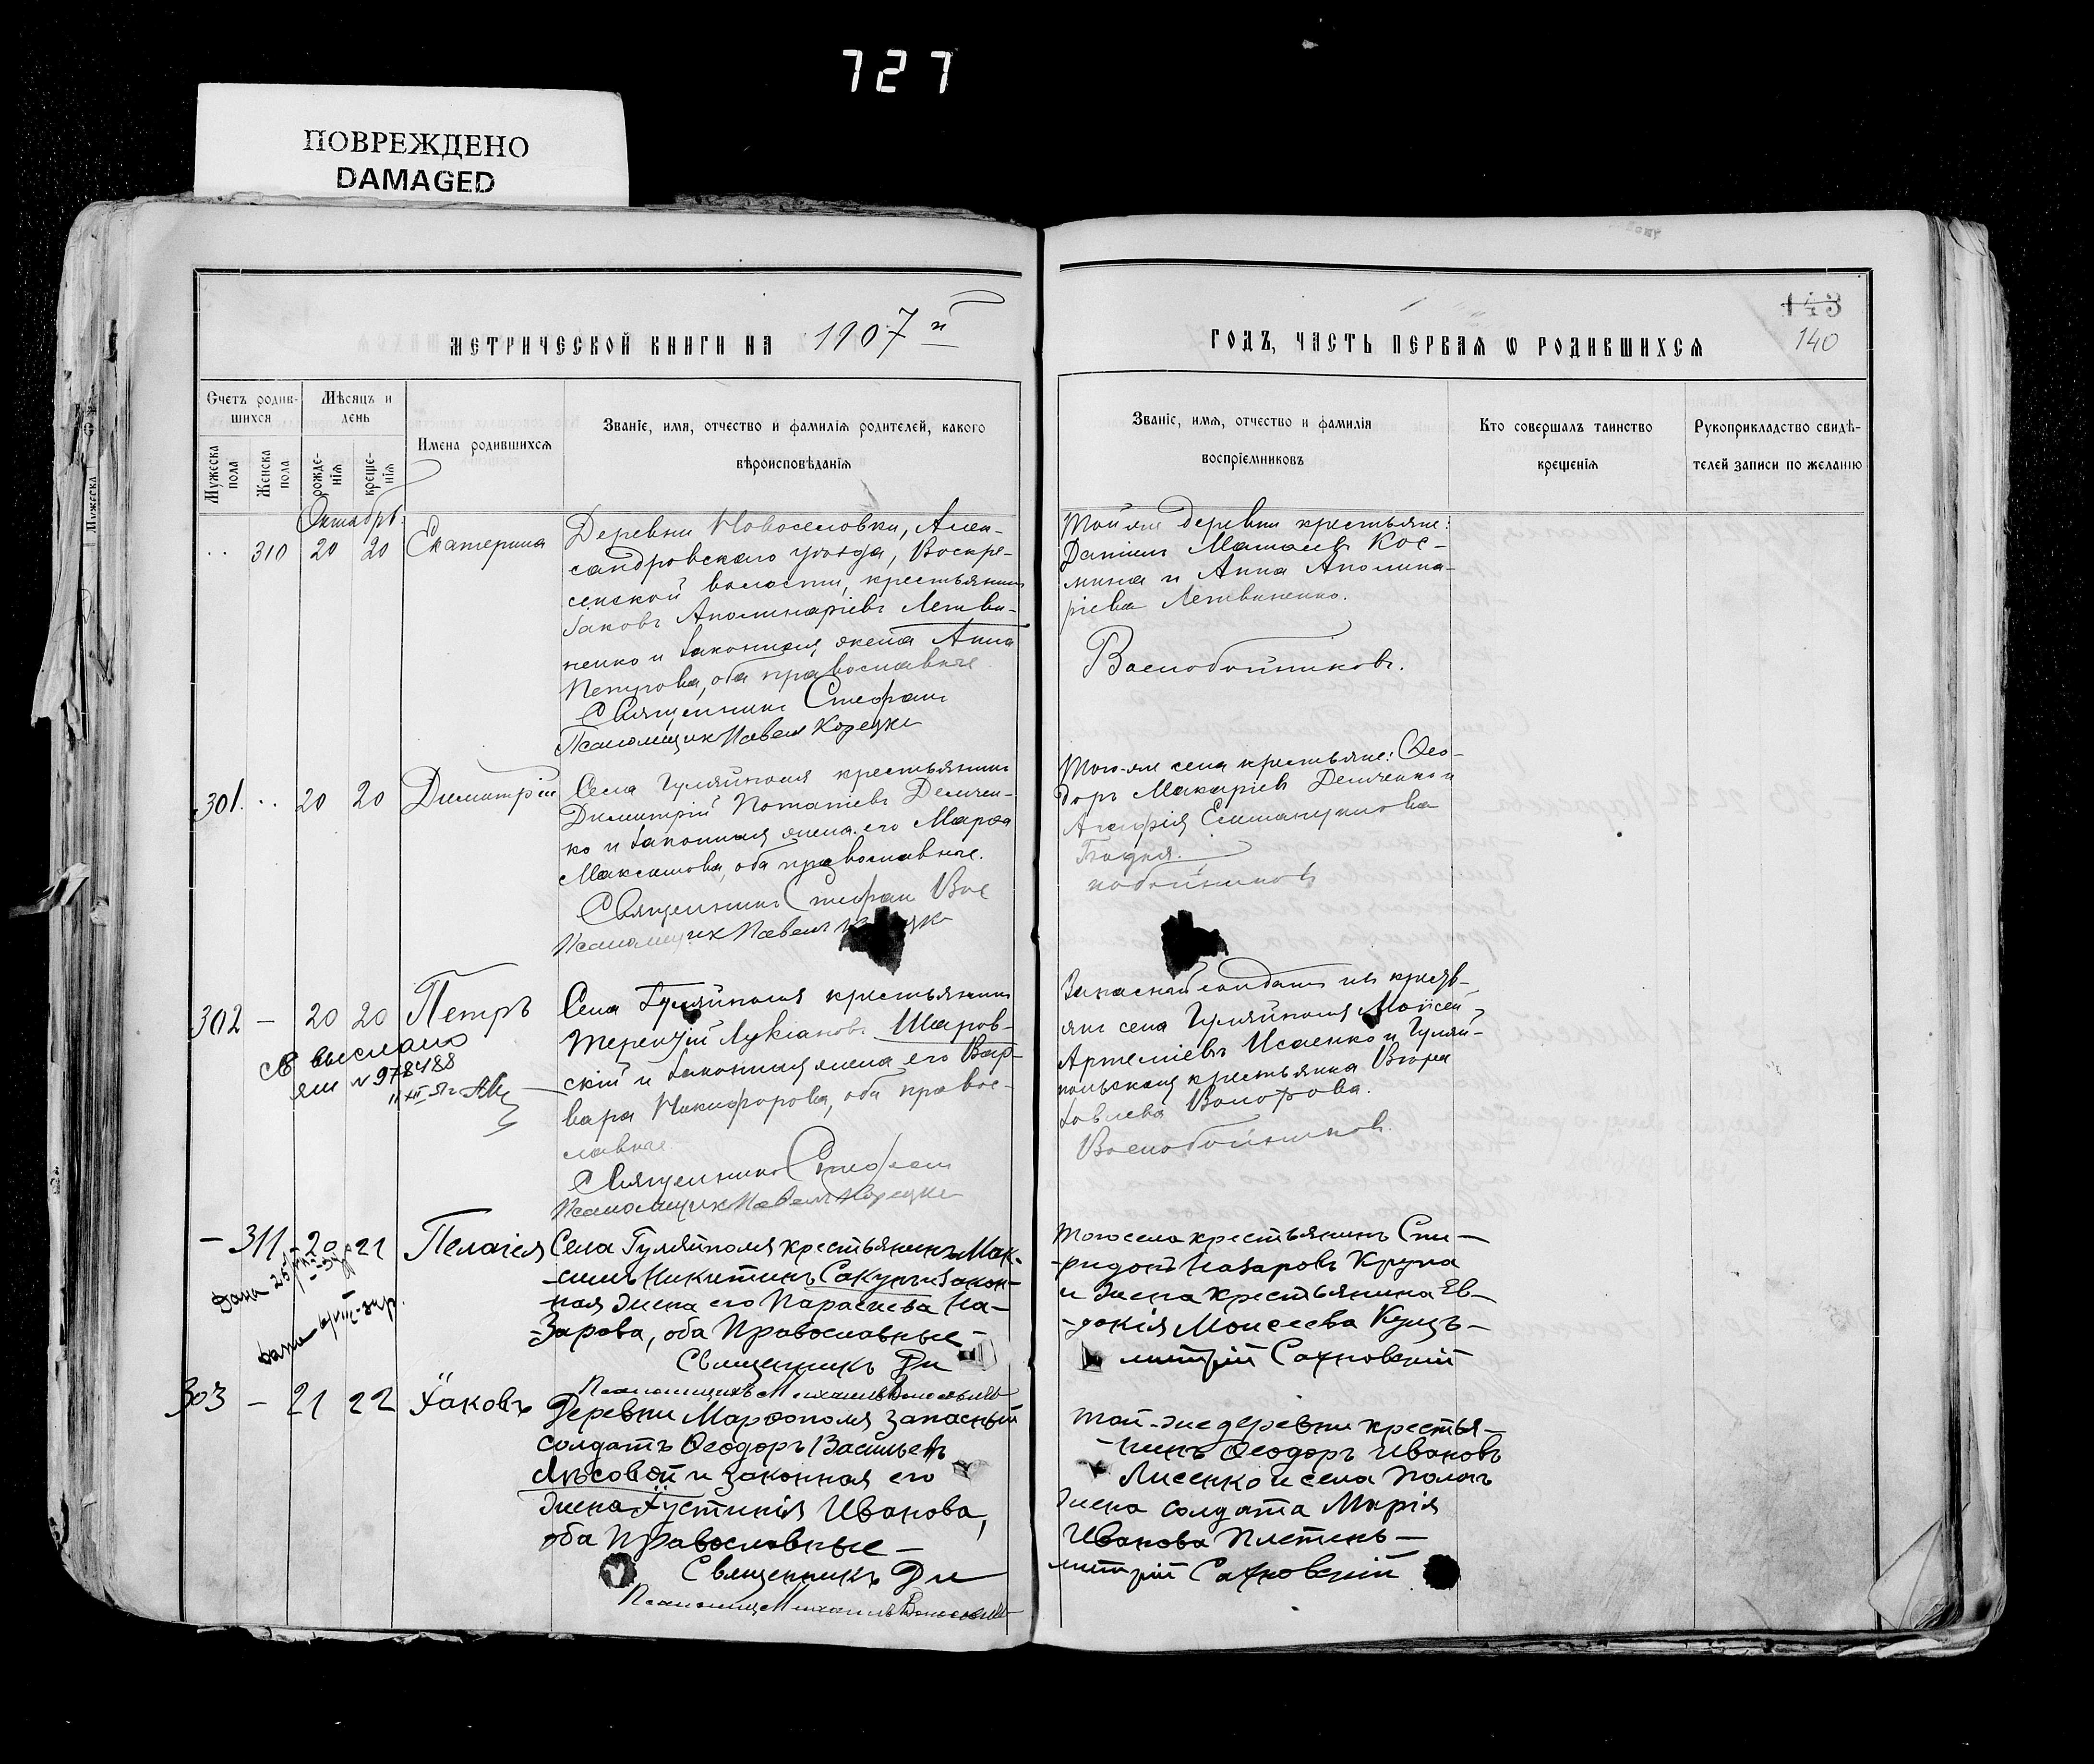 727
ПОВРЕЖДЕНО
DAMAGED
143
140
МЕТРИЧЕСКОЙ КНИГИ НА 1907 й
ГОДЪ, ЧАСТЬ ПЕРВАЯ Ѡ РОДИВШИХСЯ
Счетъ родив-
шихся
Мужеска пола
Женска пола
Мѣсяцъ и
день
рожде-
нія
креще-
нія
Имена родившихся
Званіе, имя, отчество и фамилія родителей, какого
вѣроисповѣданія
Званіе, имя, отчество и фамилія
воспріемниковъ
Кто совершалъ таинство
крещенія
Рукоприкладство свидѣ-
телей записи по желанію
Мужеска
Октябрь
310 20 20 Екатерина
Деревни Новоселовки, Алек-
сандровскаго уѣзда, Воскре-
сенской волости, крестьянинъ
Іаковъ Аполинаріевъ Литви-
ненко и законная жена Анна
Петрова, оба православные
Священникъ Стефанъ
Псаломщик Павелъ Корецки
Той же деревни крестьяне:
Даніилъ Мат Кос-
мина и Анна Аполина-
ріева Литвиненко.
Воснобойниковъ.
301. 20 20 Димитрій
Села Гуляйполя крестьянинъ
Димитрій Потапіевъ Демчен-
ко и законная жена его Марѳа
Максимова, оба православные.
Священникъ Стефан Вос
Псаломщик Павелъ
Того-же села крестьяне: Ѳео-
доръ Макаріевъ Демченко и
Агафія Еммануилова
нобойниковъ
302 - 20 20 Петръ
Села Гуляйполя крестьянинъ
Терентій Лукіановъ Шаров-
скій и законная жена его Вар-
вара Никифорова, оба правос-
лавные
Священникъ Стефан
Псаломщик Павелъ Корецки
выслано
ям № 978488
Запасный солдатъ изъ крестья-
янъ села Гуляйполя Моисей
Артеміевъ Исаенко и Гуляй-
польская крестьянка
Воснобойниковъ.
- 311 20 21 Пелагія
Села Гуляйполя крестьянинъ Мак-
симъ Никитинъ Сакунъ и закон-
ная жена его Параскева На-
зарова, оба Православные -
Священникъ Ди
Псаломщикъ Михаилъ
Того села крестьянинъ Спи-
ридонъ Назаровъ Крупа
и жена крестьянина Ев-
докія Моисеева Куць-
митрій Сахновскій
303 - 21 22 Іаковъ
Деревни Марѳополя запасный
солдатъ Ѳеодоръ Васильевъ
Лѣсовой и законная его
жена Іустинія Иванова,
оба Православные -
Священникъ Ди
Псаломщ Михаилъ
Той-же деревни крестья-
нинъ Ѳеодоръ Ивановъ
Лисенко и села Пологъ
жена солдата Марія
Иванова Плетень -
митрій Сахновскій